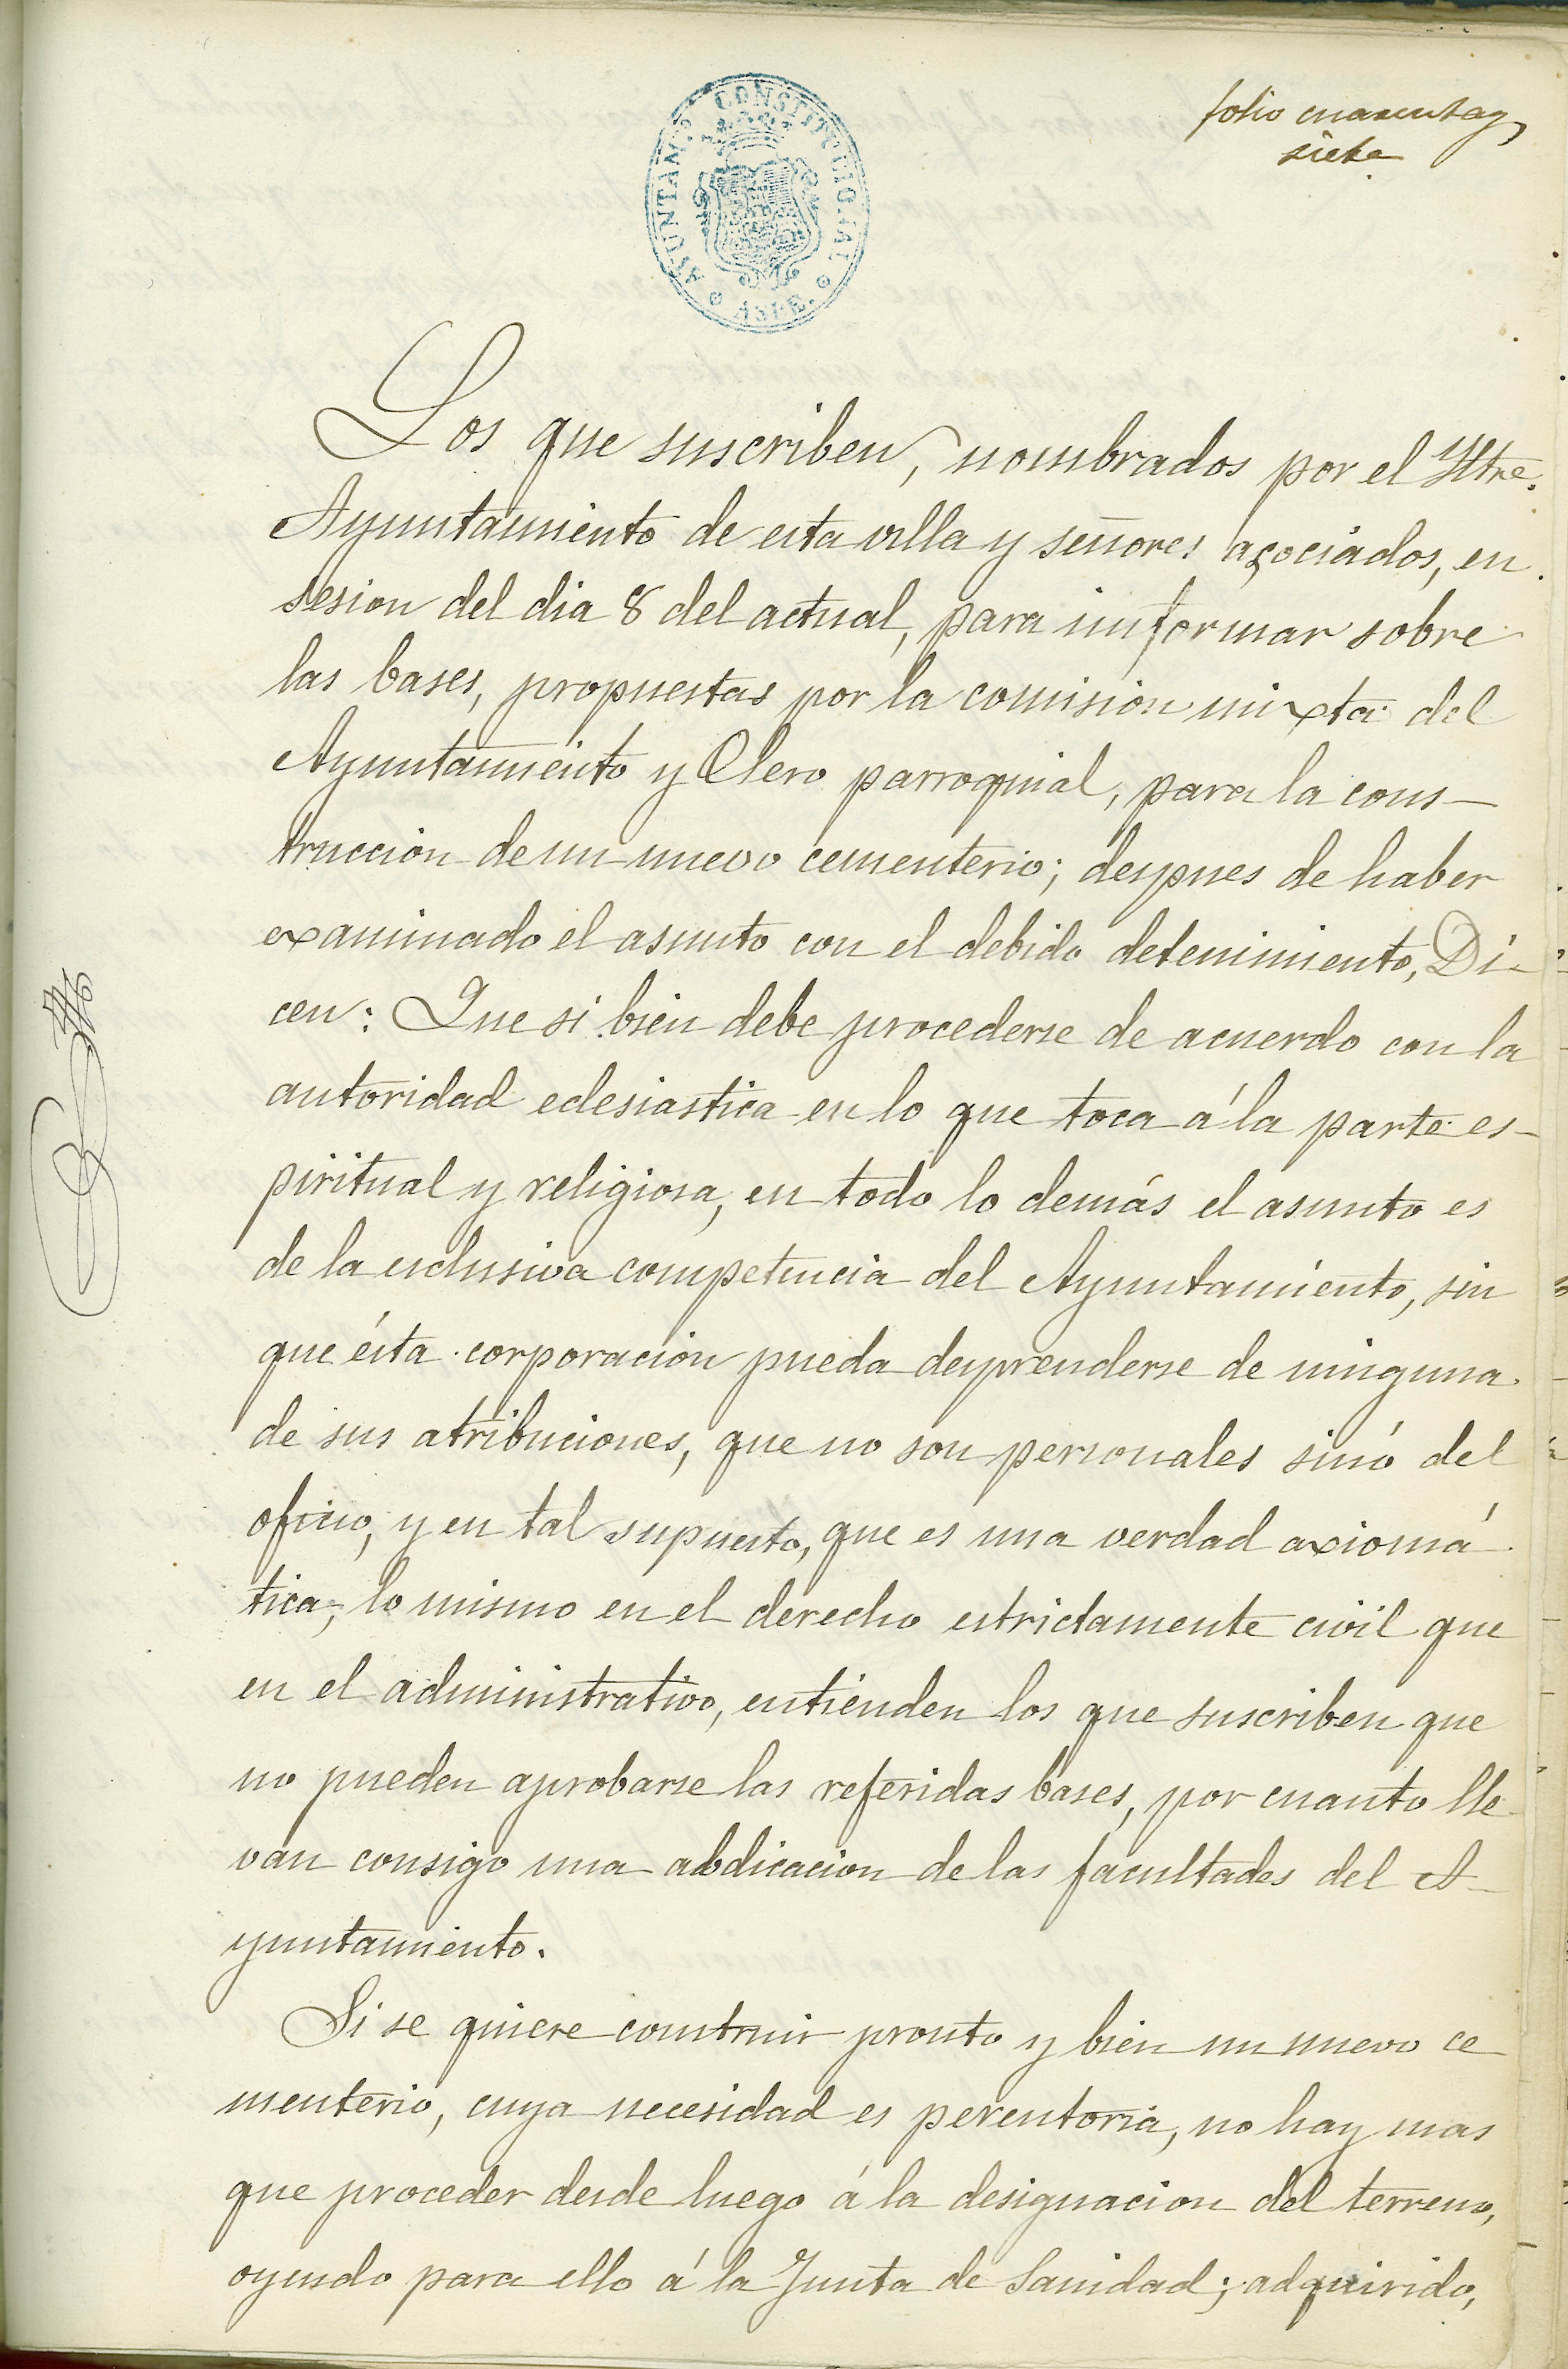 folio cuarenta y
siete
AYUNTAMº CONSTITUCIONAL
ASPE.
Los que suscriben, nombrados por el Yltre.
Ayuntamiento de esta villa y señores asociados, en
sesion del dia 8 del actual, para informar sobre
las bases, propuestas por la comisión mixta del
Ayuntamiento y Clero parroquial, para la cons-
trucción de un nuevo cementerio; despues de haber
examinado el asunto con el debido detenimiento, Di-
cen: Que si bien debe procederse de acuerdo con la
autoridad eclesiastica en lo que toca á la parte es-
piritual y religiosa, en todo lo demás el asunto es
de la esclusiva competencia del Ayuntamiento, sin
que ésta corporación pueda desprenderse de ninguna
de sus atribuciones, que no son personales sinó del
oficio, y en tal supuesto, que es una verdad axiomá-
tica, lo mismo en el derecho estrictamente civil que
en el administrativo, entienden los que suscriben que
no pueden aprobarse las referidas bases, por cuanto lle-
van consigo una abdicacion de las facultades del A-
yuntamiento.
Si se quiere construir pronto y bien un nuevo ce-
menterio, cuya necesidad es perentoria, no hay mas
que proceder desde luego á la designacion del terreno,
oyendo para ello á la Junta de Sanidad; adquirido,